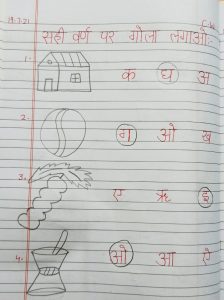 19.7.21
सही वर्ण पर गोला लगाओ
1. क घ अ
2. ग ओ ख
3. ए ऋ इ
4. ओ आ ऐ